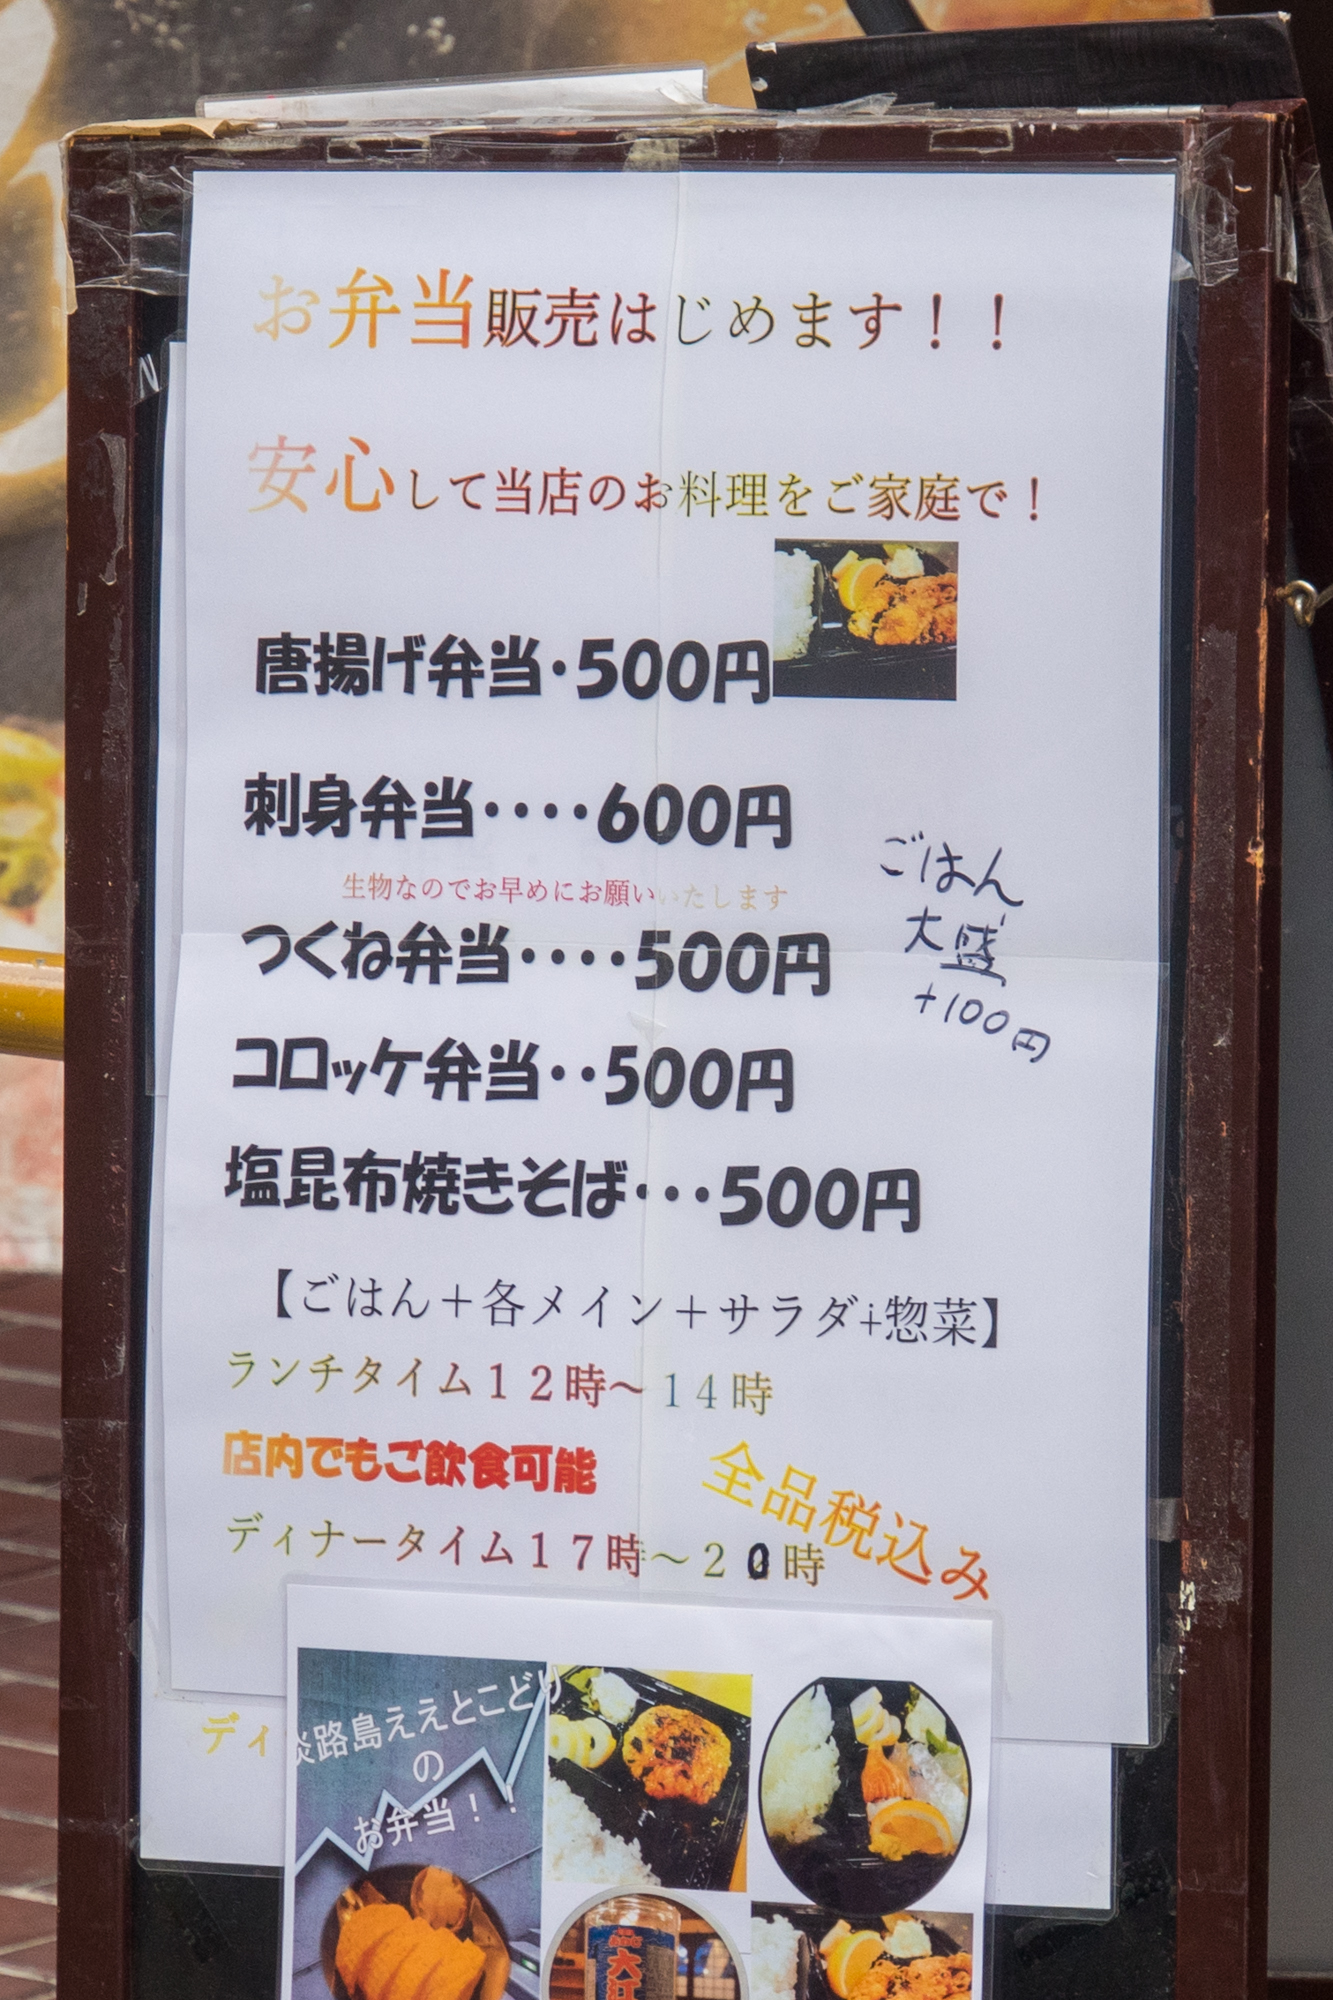 お弁当販売はじめます！！
安心して当店のお料理をご家庭で！
唐揚げ弁当・500円
刺身弁当・・・・600円
生物なのでお早めにお願いいたします
つくね弁当・・・・500円
コロッケ弁当・・500円
塩昆布焼きそば・・・500円
ごはん
大盛
+100円
【ごはん＋各メイン＋サラダ+惣菜】
ランチタイム１２時～１４時
店内でもご飲食可能
全品税込み
ディナータイム１７時～２0時
ディ
淡路島ええとこどり
の
お弁当！！